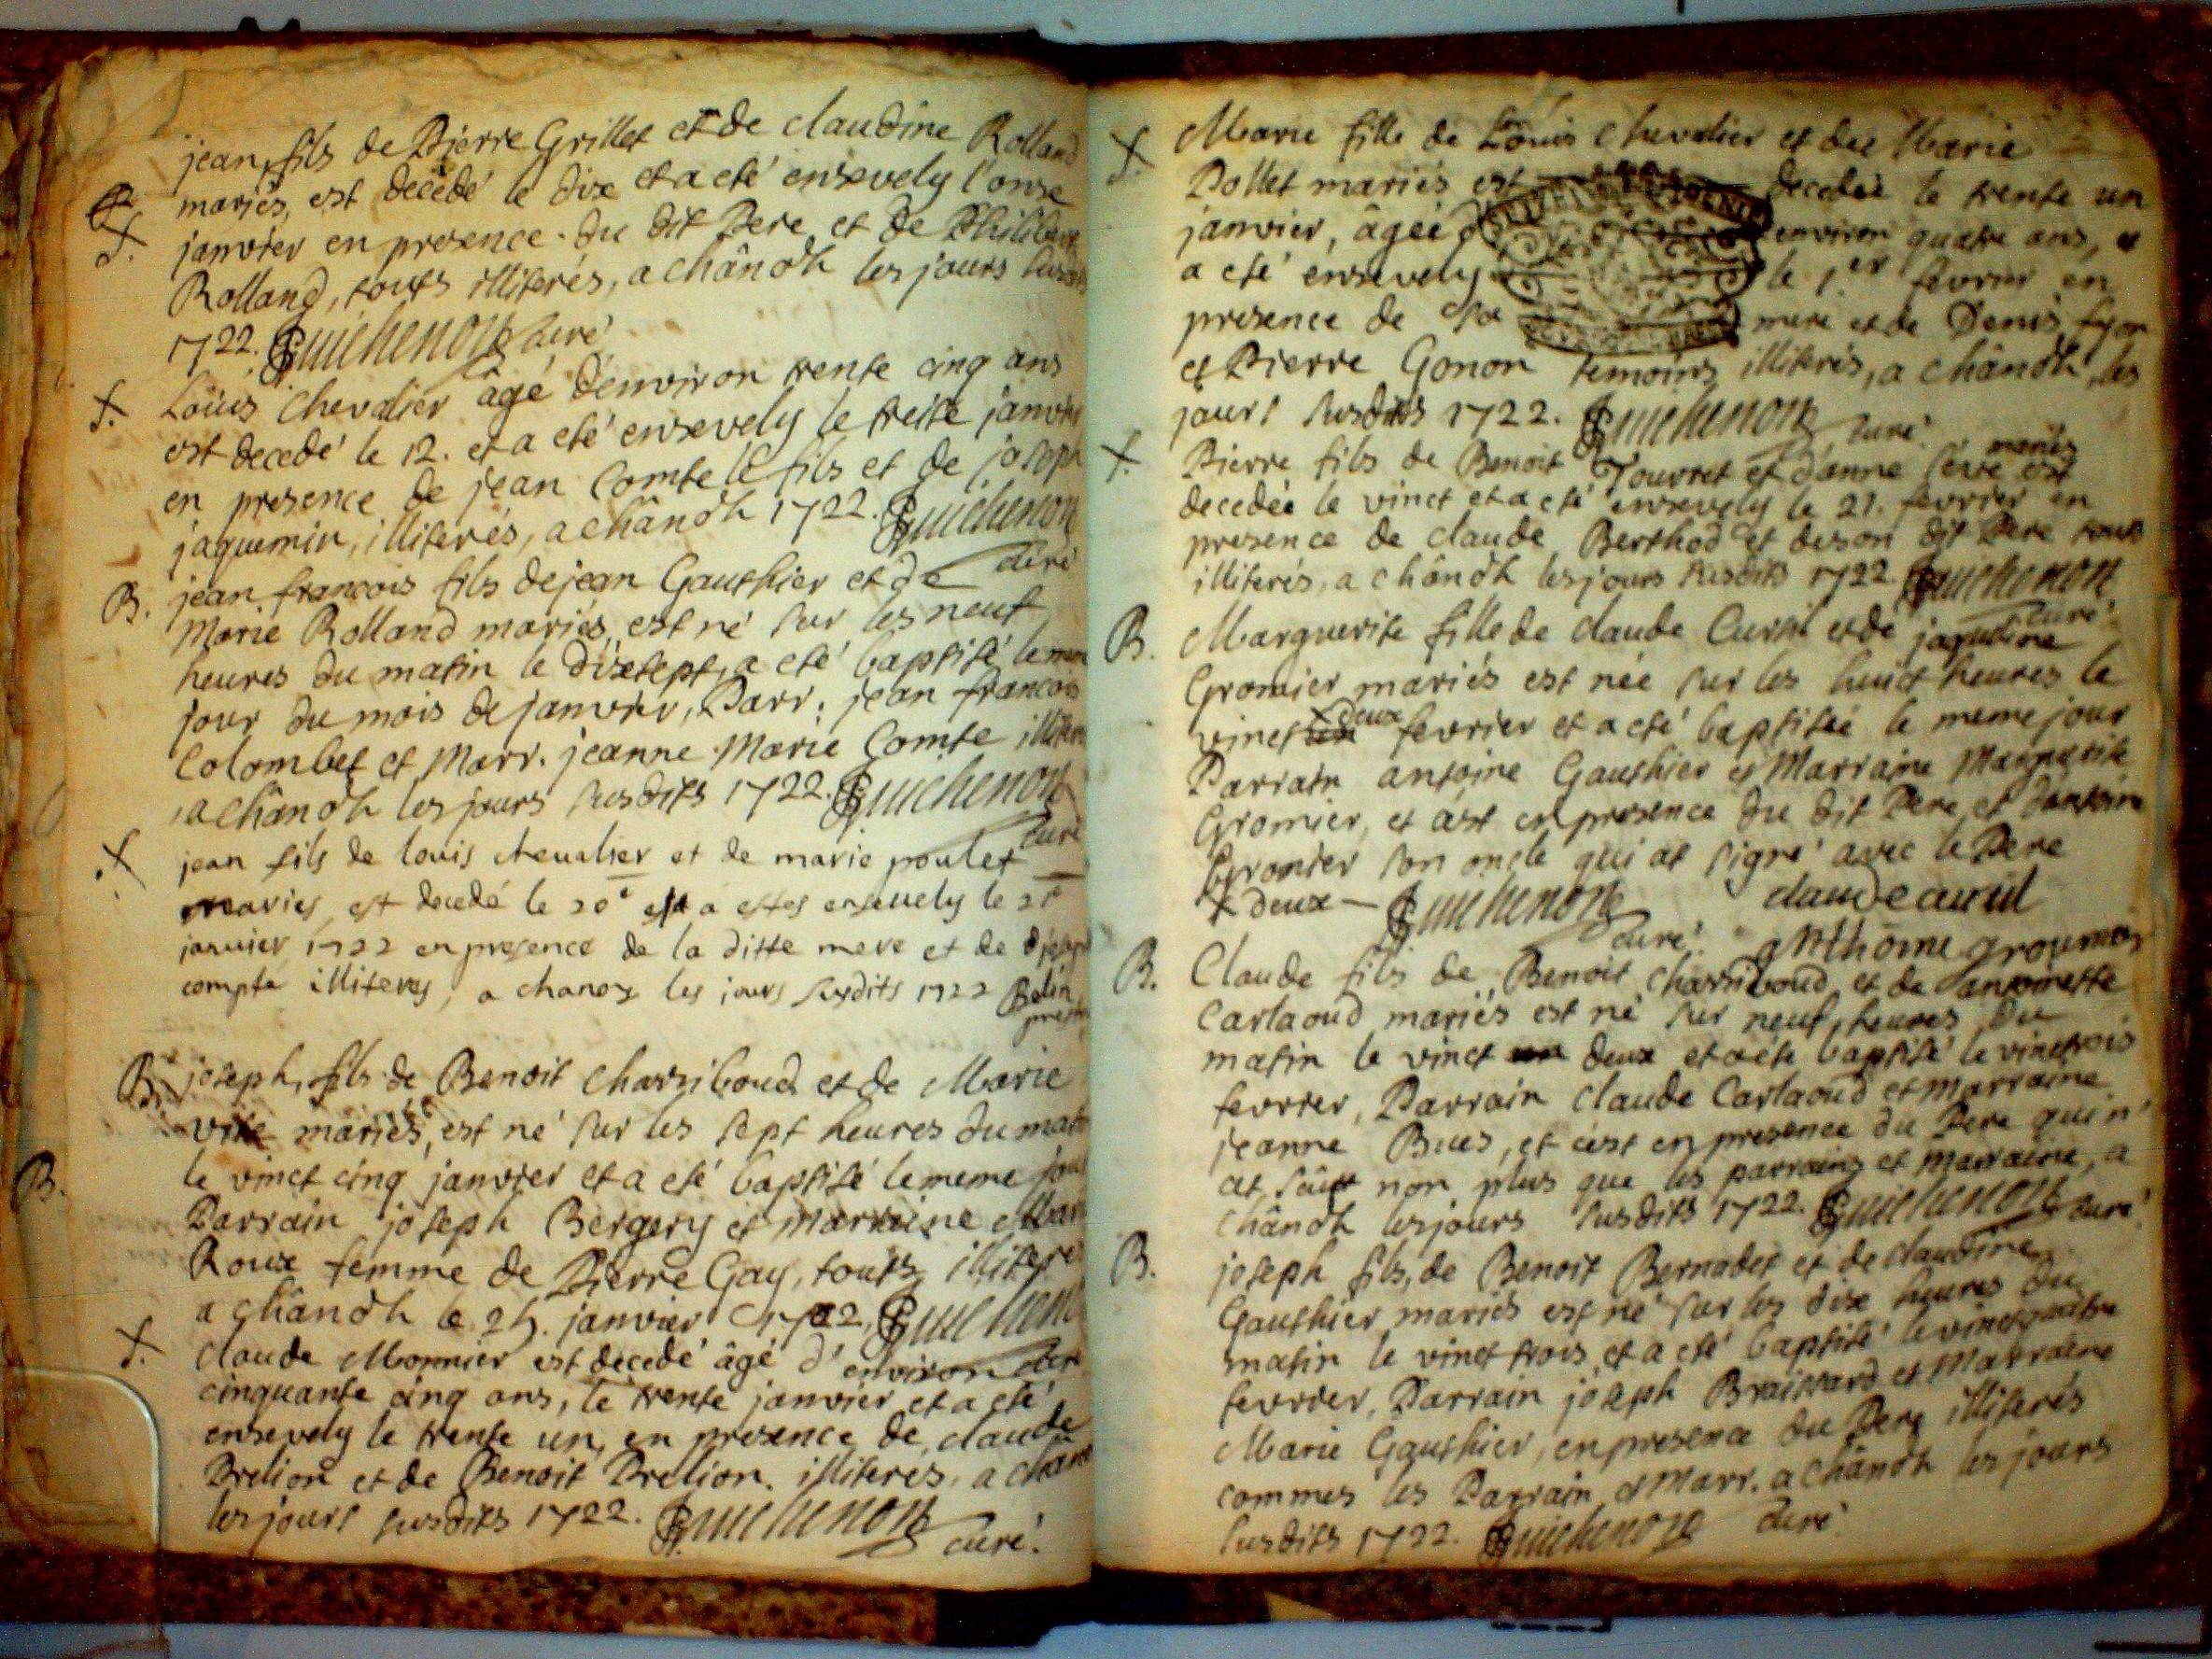 jean, fils de Pierre Grillet et de claudine Rolland
mariés, est decedé le dix et a eté ensevely l'onse
janvier en presence du dit Pere et de
Rolland, touts illiterés, a chânoz les jours
1722. Guichenon curé
Loüis Chevalier âgé d'environ trente cinq ans
est decedé le 12. et a eté ensevely le treise janvier
en presence de jean Comte le fils et de joseph
jaquemin, illiterés, a chânoz 1722. Guichenon
curé
B. jean françois fils de jean Gauthier et de
Marie Rolland mariés, est né sur les neuf
heures du matin le dixsept, a eté baptisé le
jour du mois de janvier, Parr. jean francois
Colombet et Marr. jeanne Marie Comte
a chânoz les jours susdits 1722. Guichenon
curé
jean fils de louis chevalier et de marie poulet
maries, est decedé le 20e a estes ensevely le 21
janvier 1722 en presence de la ditte mere et de
compte illiteres, a chanoz les jours susdits 1722 Belin
B. joseph, fils de Benoit Charriboud et de Marie
mariés, est né sur les sept heures du
le vinct cinq janvier et a eté baptisé le meme
B.
Parrain joseph Bergery et Marraine
Roux femme de Pierre Gay, touts
a chânoz le janvier 1722,
claude Monnier est decedé âgé d'environ
cinquante cinq ans, le trente janvier et a eté
ensevely le trente un, en presence de claude
Brelion et de Benoit Brelion. illiterés, a
les jours susdits 1722. Guichenon curé.
Marie fille de Loüis Chevalier et de Marie
Pollet mariés est decedée le trente un
janvier, âgée environ quatre ans, et
a eté ensevely le 1er fevrier en
presence de sa mere et de Denis
et Pierre Gonon temoins illiterés, a chânoz, les
jours susdits 1722. Guichenon curé
mariés
Pierre fils de Benoit Touvret et d'anne est
decedée le vinct et a eté ensevely le 21. fevrier en
presence de claude Berthod et de son dit Pere touts
illiterés, a chânoz les jours susdits 1722. Guichenon
curé
B. Marguerite fille de claude Curnil et de jaqueline
Gromier mariés est née sur les huict heures le
deux
vinct un fevrier et a eté baptisée le meme jour
Parrain antoine Gauthier et Marraine Marguerite
Gromier, et c'est en presence du dit Pere et d'antoine
Gromier son oncle qui at signé avec le Pere
x deux — Guichenon curé
B. Claude fils de Benoit Charriboud et de antoinette
Carlaoud mariés est né sur neuf heures du
matin le vinct un deux et a eté baptisé le vinctrois
fevrier, Parrain claude Carlaoud et Marraine
jeanne et c'est en presence du Pere qui n'
at non plus que les parrains et Marraine, a
chânoz les jours susdits 1722. Guichenon curé
B. joseph fils, de Benoit Bernadet et de claudine
Gauthier mariés est né sur les dix heures du
matin le vinct trois et a eté baptisé le vinctquatre
fevrier, Parrain joseph et Marraine
Marie Gauthier, en presence du Pere illiterés
commes les Parrain et Marr. a chânoz les jours
susdits 1722. Guichenon curé